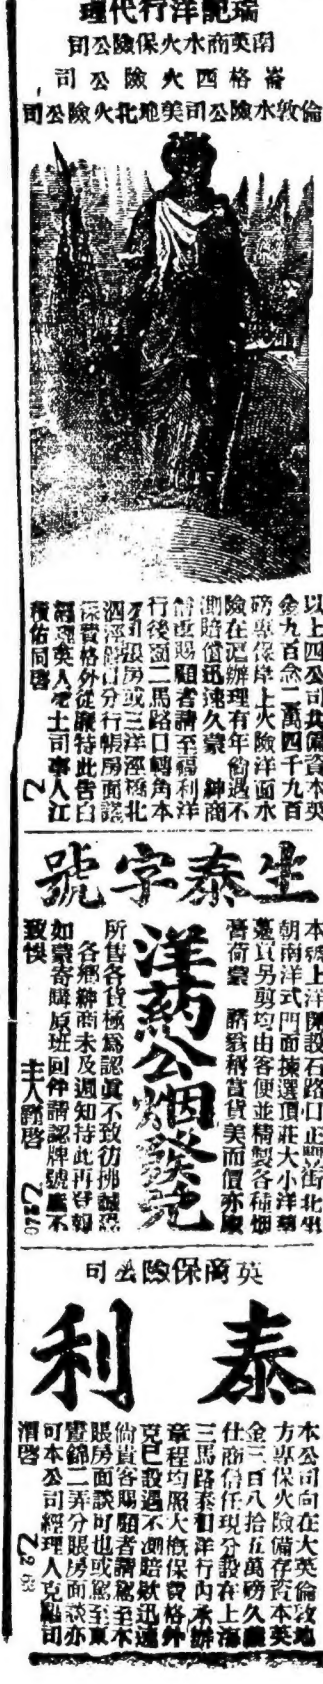 瑞記洋行代理
南英商水火保險公司
崙格西火險公司
倫敦水險公司美地北火險公司
以上四公司共備資本英
金九百念二萬四千九百
磅專保岸上火險洋面水
險在滬辦理有年倘遇不
測賠償迅速久蒙 紳商
倘賜顧者請至福利洋
行後面二馬路口轉角本
公司賬房或三洋涇橋北
泗涇路口分行帳房面議
保費格外從廉特此告白
經理英人 士司事人江
積佑同啓
生泰字號
本號上洋開設石路口正豐街北坐
朝南洋式門面揀選頂莊大小洋藥
躉買另剪均由客便並精製各種烟
膏荷蒙 諸 稱賞貨美而價亦廉
洋药公烟發兌
所售各貨極為認眞不致彷彿誠恐
各鄉紳商未及週知特此再登報
如蒙寄購原班回件請認牌號庶不
致悞
主人謹啓
英商保險公司
泰利
本公司向在大英倫敦地
方專保火險備存資本英
金三百八拾五萬磅久蒙
仕商信任現分設在上海
三馬路泰和洋行內承辦
章程均照大概保費格外
克己設遇不測賠欵迅速
倘貴客賜顧者請駕至本
賬房面談可也或駕至東
錦二弄分賬房面談亦
可本公司經理人克 司
謂啓